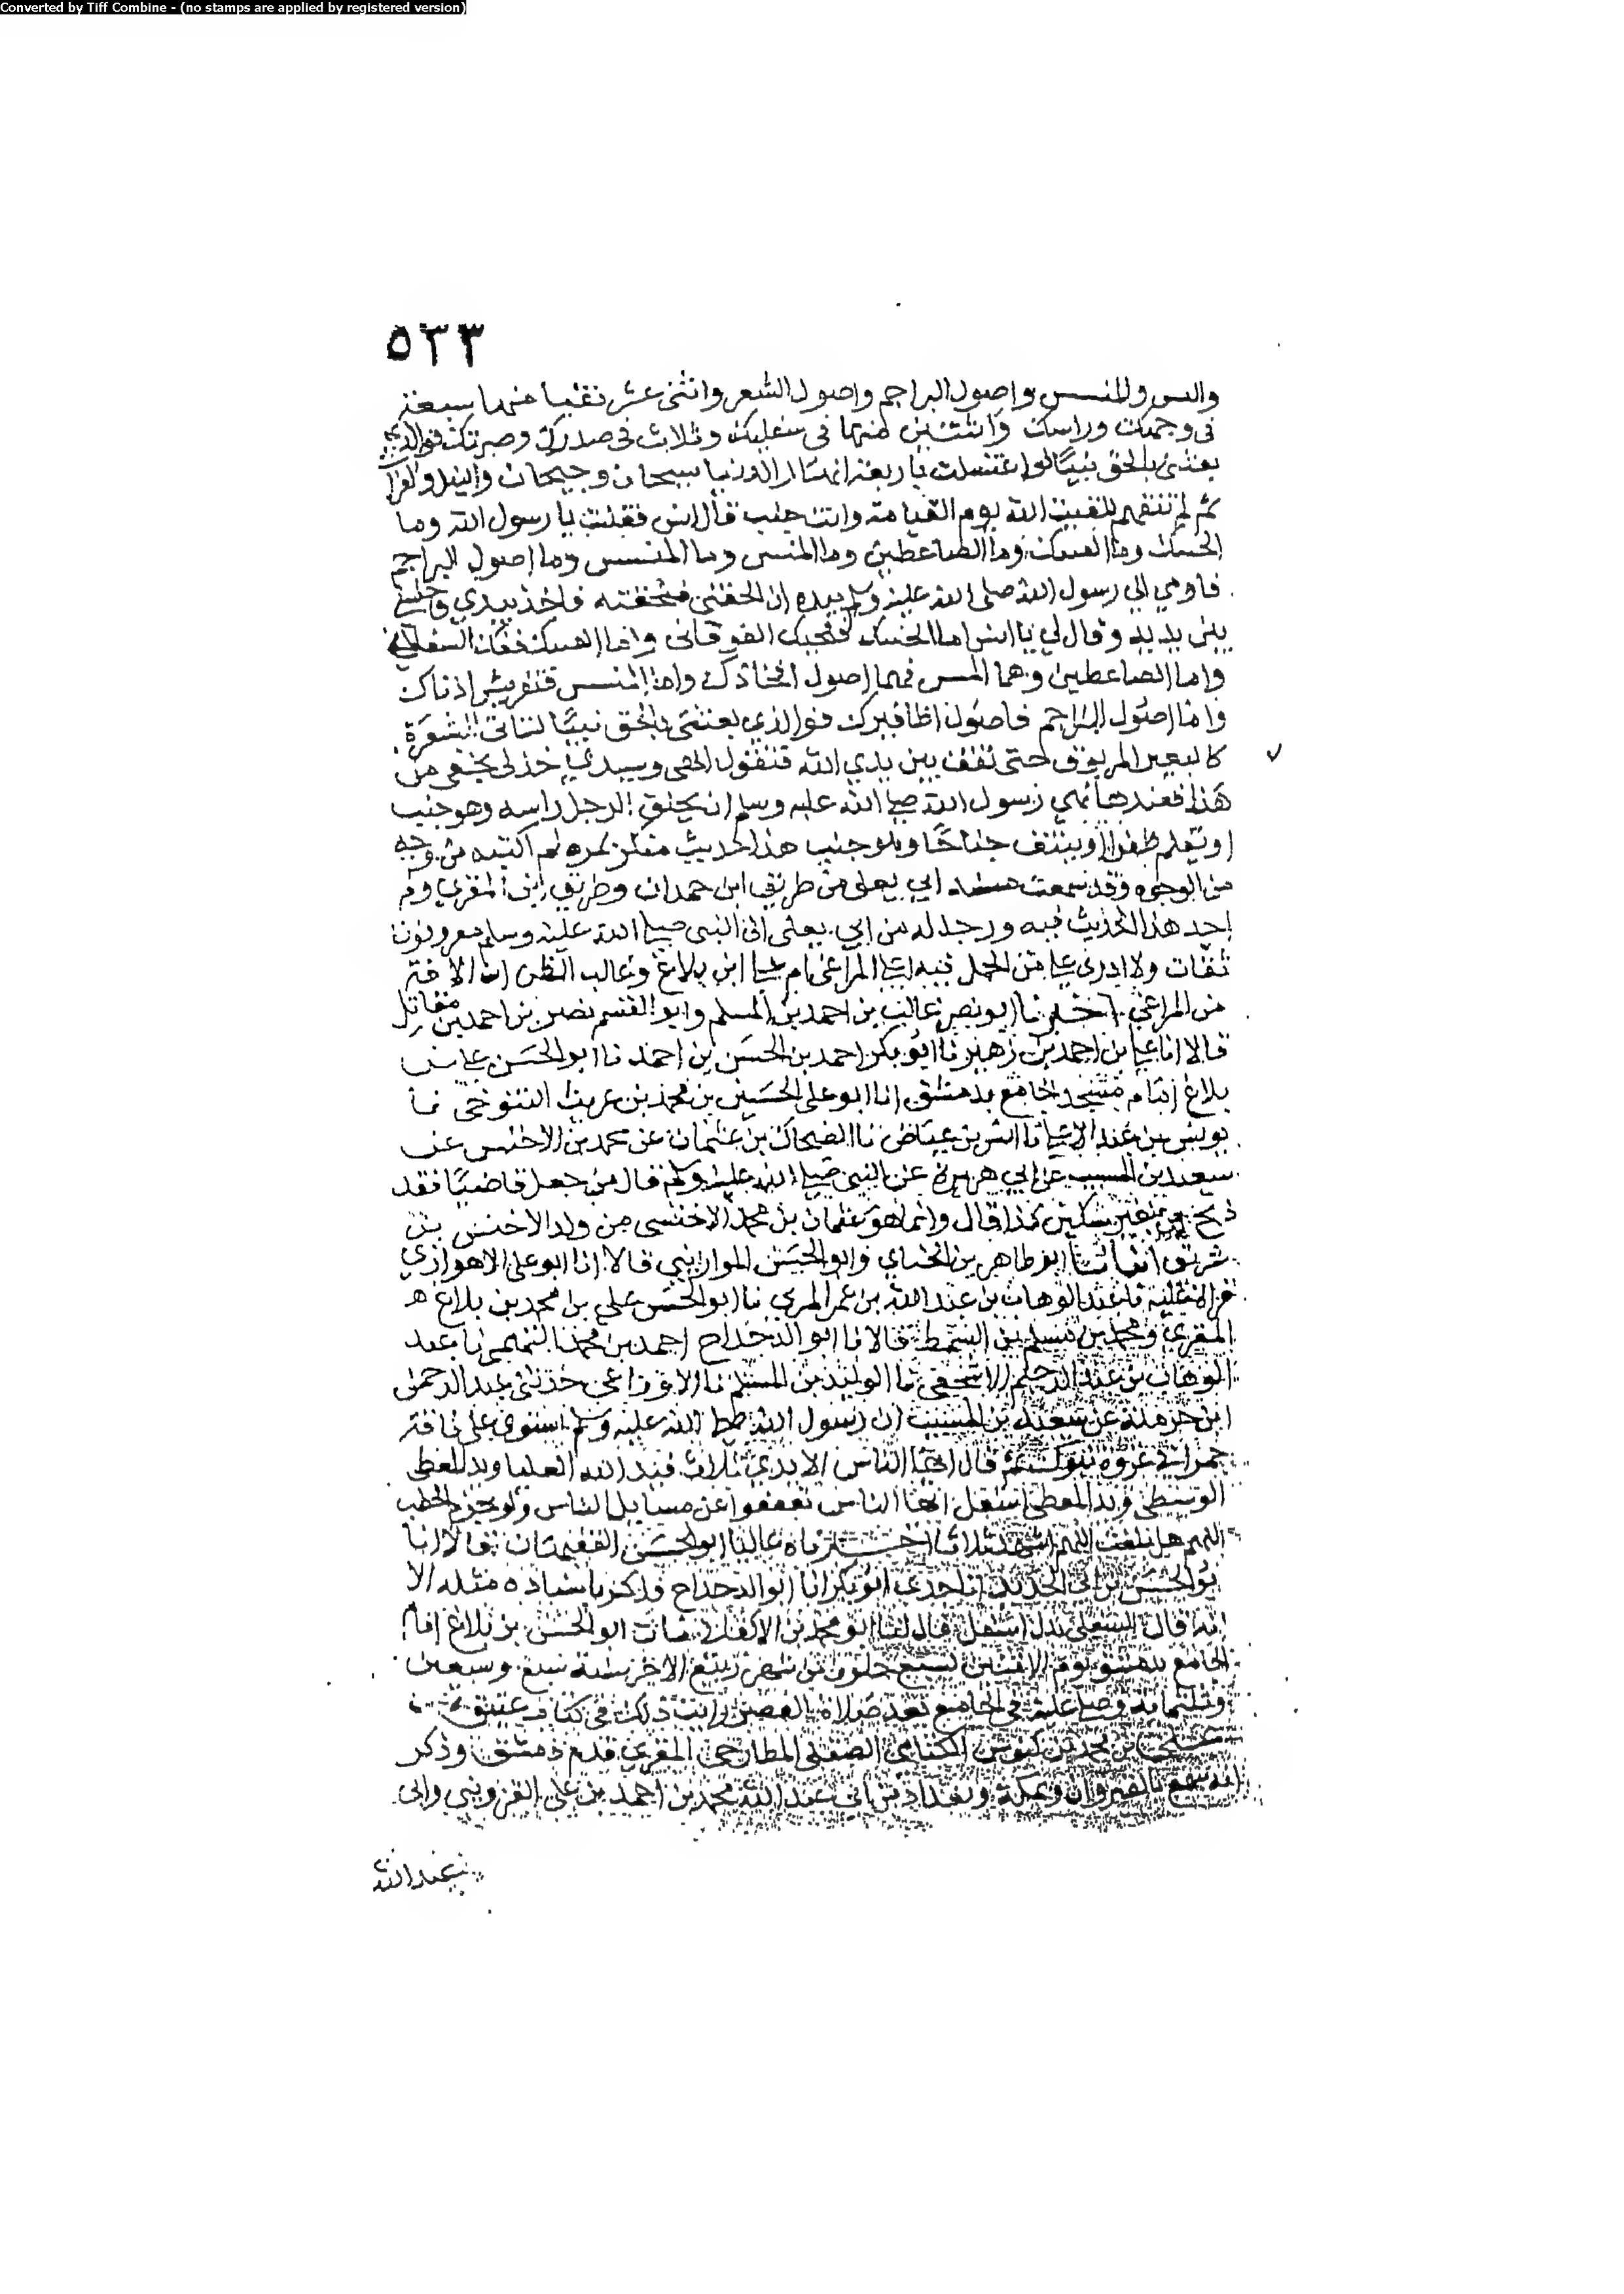 Converted by Tiff Combine - (no stamps are applied by registered version)
٥٣٣
والمنسس واصول البراجم واصول الشعر واثنى عشر نقبا منها سبعة
فى وجهك وراسك واثنتين منها فى سفليك وثلاث فى صدرك وصرتك فوالذي
بعثنى بالحق نبيا لو اغتسلت باربعة انهار الدنيا سيحان وجيحان والنيل والفرات
ثم لم تنقهم للقيت الله يوم القيامة وانت جنب قال انس فقلت يا رسول الله وما
الحسك وما المسك وما الصاعطين وما المنسى وما المنسس وما اصول البراجم
فاومى الي رسول الله صلى الله عليه وسلم بيده ان الحقنى فلحقته فاخذ بيدي واجلسني
بين يديه وقال لي يا انس اما الحسك فلحيك الفوقانى واما المسك ففكك السفلاني
واما الصاعطين وهما المس فهما اصول افخاذك واما المنسس فتفريش اذناك
واما اصول البراجم فاصول اظافيرك فوالذي بعثنى بالحق نبيا لتاتى الشعرة
كالبعير المربوق حتى تقف بين يدي الله فتقول الهى وسيدي خذ لى بحقى من
هذا فعندها نهى رسول الله صلى الله عليه وسلم ان يحلق الرجل راسه وهو جنب
او يقلم ظفرا او ينتف جناحا وهو جنب هذا الحديث منكر بمره لم اكتبه من وجه
من الوجوه وقد سمعت مسند ابي يعلى من طريق ابن حمدان وطريق ابن المقري ولم
اجد هذا الحديث فيه ورجاله من ابي يعلى الى النبى صلى الله عليه وسلم معروفون
ثقات ولا ادرى على من الحمل فيه اعلى المراغى ام على ابن بلاغ وغالب الظن ان الافة
من المراغي اخبرنا ابو نصر غالب بن احمد بن المسلم وابو القسم نصر بن احمد بن مقاتل
قالا انا علي بن احمد بن زهير نا ابو بكر احمد بن الحسن بن احمد نا ابو الحسن علي بن
بلاغ امام مسجد الجامع بدمشق انا ابو على الحسين بن محمد بن غريب التنوخى نا
يونس بن عبد الاعلى نا انس بن عياض نا الضحاك بن عثمان عن محمد بن الاخنس عن
سعيد بن المسيب عن ابي هريرة عن النبى صلى الله عليه وسلم قال من جعل قاضيا فقد
ذبح بغير سكين كذا قال وانما هو عثمان بن محمد الاخنسى من ولد الاخنس بن
شريق انبانا ابو طاهر بن الحناي وابو الحسن الموازيني قالا انا ابو على الاهوازي
قراة عليه نا عبد الوهاب بن عبد الله بن عمر المري نا ابو الحسن علي بن محمد بن بلاغ
المقري ومحمد بن مسلم بن السمط قالا نا ابو الدحداح احمد بن محمد التميمى نا عبد
الوهاب بن عبد الرحيم الاشجعي نا الوليد بن مسلم نا الاوزاعى حدثنى عبد الرحمن
ابن حرملة عن سعيد بن المسيب ان رسول الله صلى الله عليه وسلم استوى على ناقة
حمرا في غزوة تبوك ثم قال ايها الناس الايدي ثلاث فيد الله العليا ويد المعطى
الوسطى ويد المعطى اسفل ايها الناس تعففوا عن مسايل الناس ولو بحزم الحطب
اللهم هل بلغت اللهم اشهد ثلاثا اخبرناه عاليا ابو الحسن الفقيهان قالا انا
ابو الحسن بن ابي الحديد انا جدي ابو بكر انا ابو الدحداح فذكر باسناده مثله الا
انه قال السفلى بدل اسفل قال لنا ابو محمد بن الاكفاني مات ابو الحسن بن بلاغ امام
الجامع بدمشق يوم الاثنين لسبع خلون من شهر ربيع الاخر سنة سبع وسبعين
وثلثماية وصلى عليه في الجامع بعد صلاة العصر رايت ذلك فى كتاب عتيق
علي بن محمد الكتامى الصقلى المقري قدم دمشق وذكر
انه سمع بالقيروان وبمكة وبغداد من ابى عبد الله محمد بن احمد بن على القزوينى وابى
عبد الله